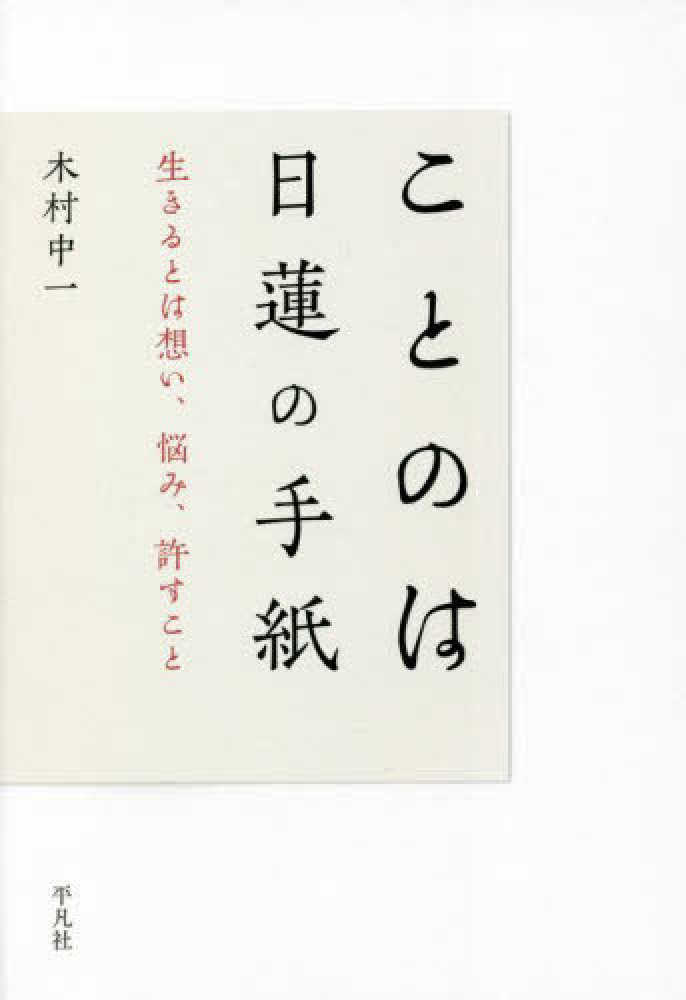 ことのは
日蓮の手紙
生きるとは想い、悩み、許すこと
木村中一
平凡社